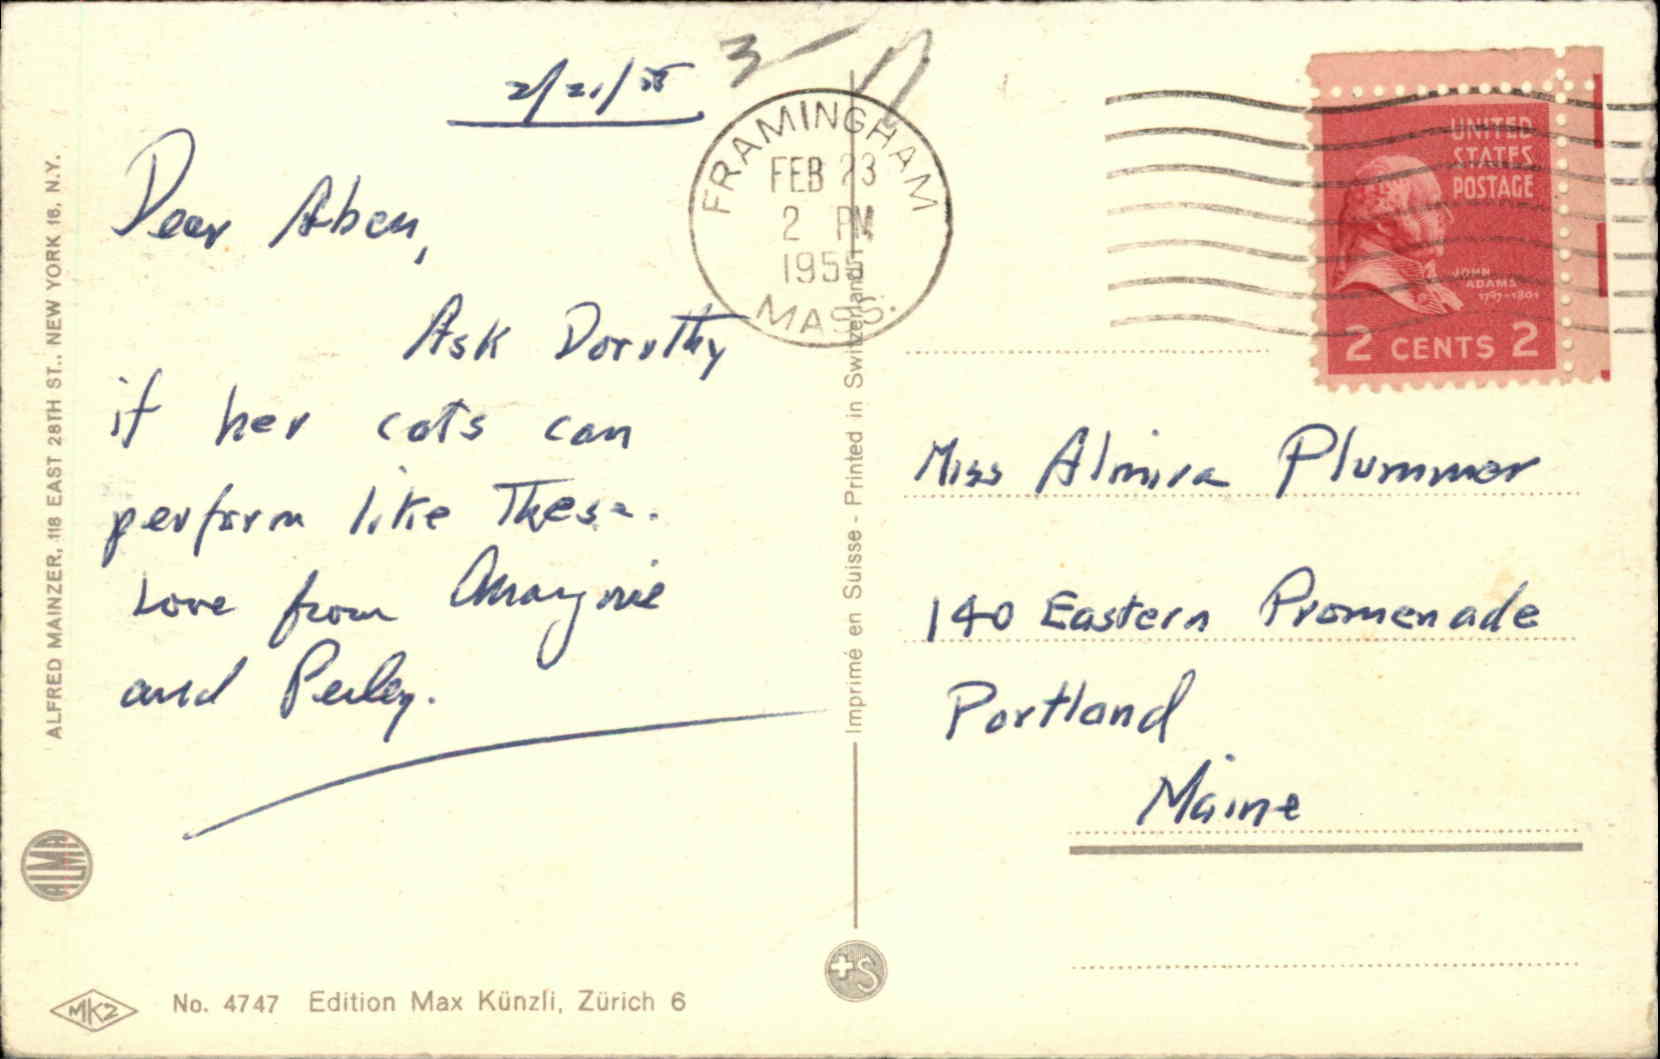 2/21/55
3
Dear Aben,
Ask Dorothy
if her cats can
perform like these.
Love from Marjorie
and Perley.
ALFRED MAINZER, 118 EAST 28TH ST., NEW YORK 16, N.Y.
ALMA
MKZ
No. 4747 Edition Max Künzli, Zürich 6
FRAMINGHAM
FEB 23
2 PM
1955
MASS.
Imprimé en Suisse - Printed in Switzerland
+S
UNITED
STATES
POSTAGE
JOHN
ADAMS
1797-1801
2 CENTS 2
Miss Almira Plummer
140 Eastern Promenade
Portland
Maine